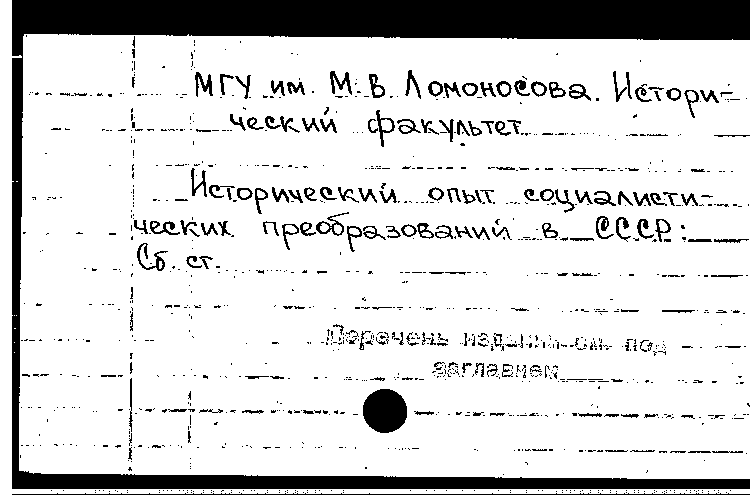 МГУ им. М. В. Ломоносова. Истори-
ческий факультет
Исторический опыт социалисти-
ческих преобразований в СССР:
Сб. ст.
Перечень изданий см. под
заглавием